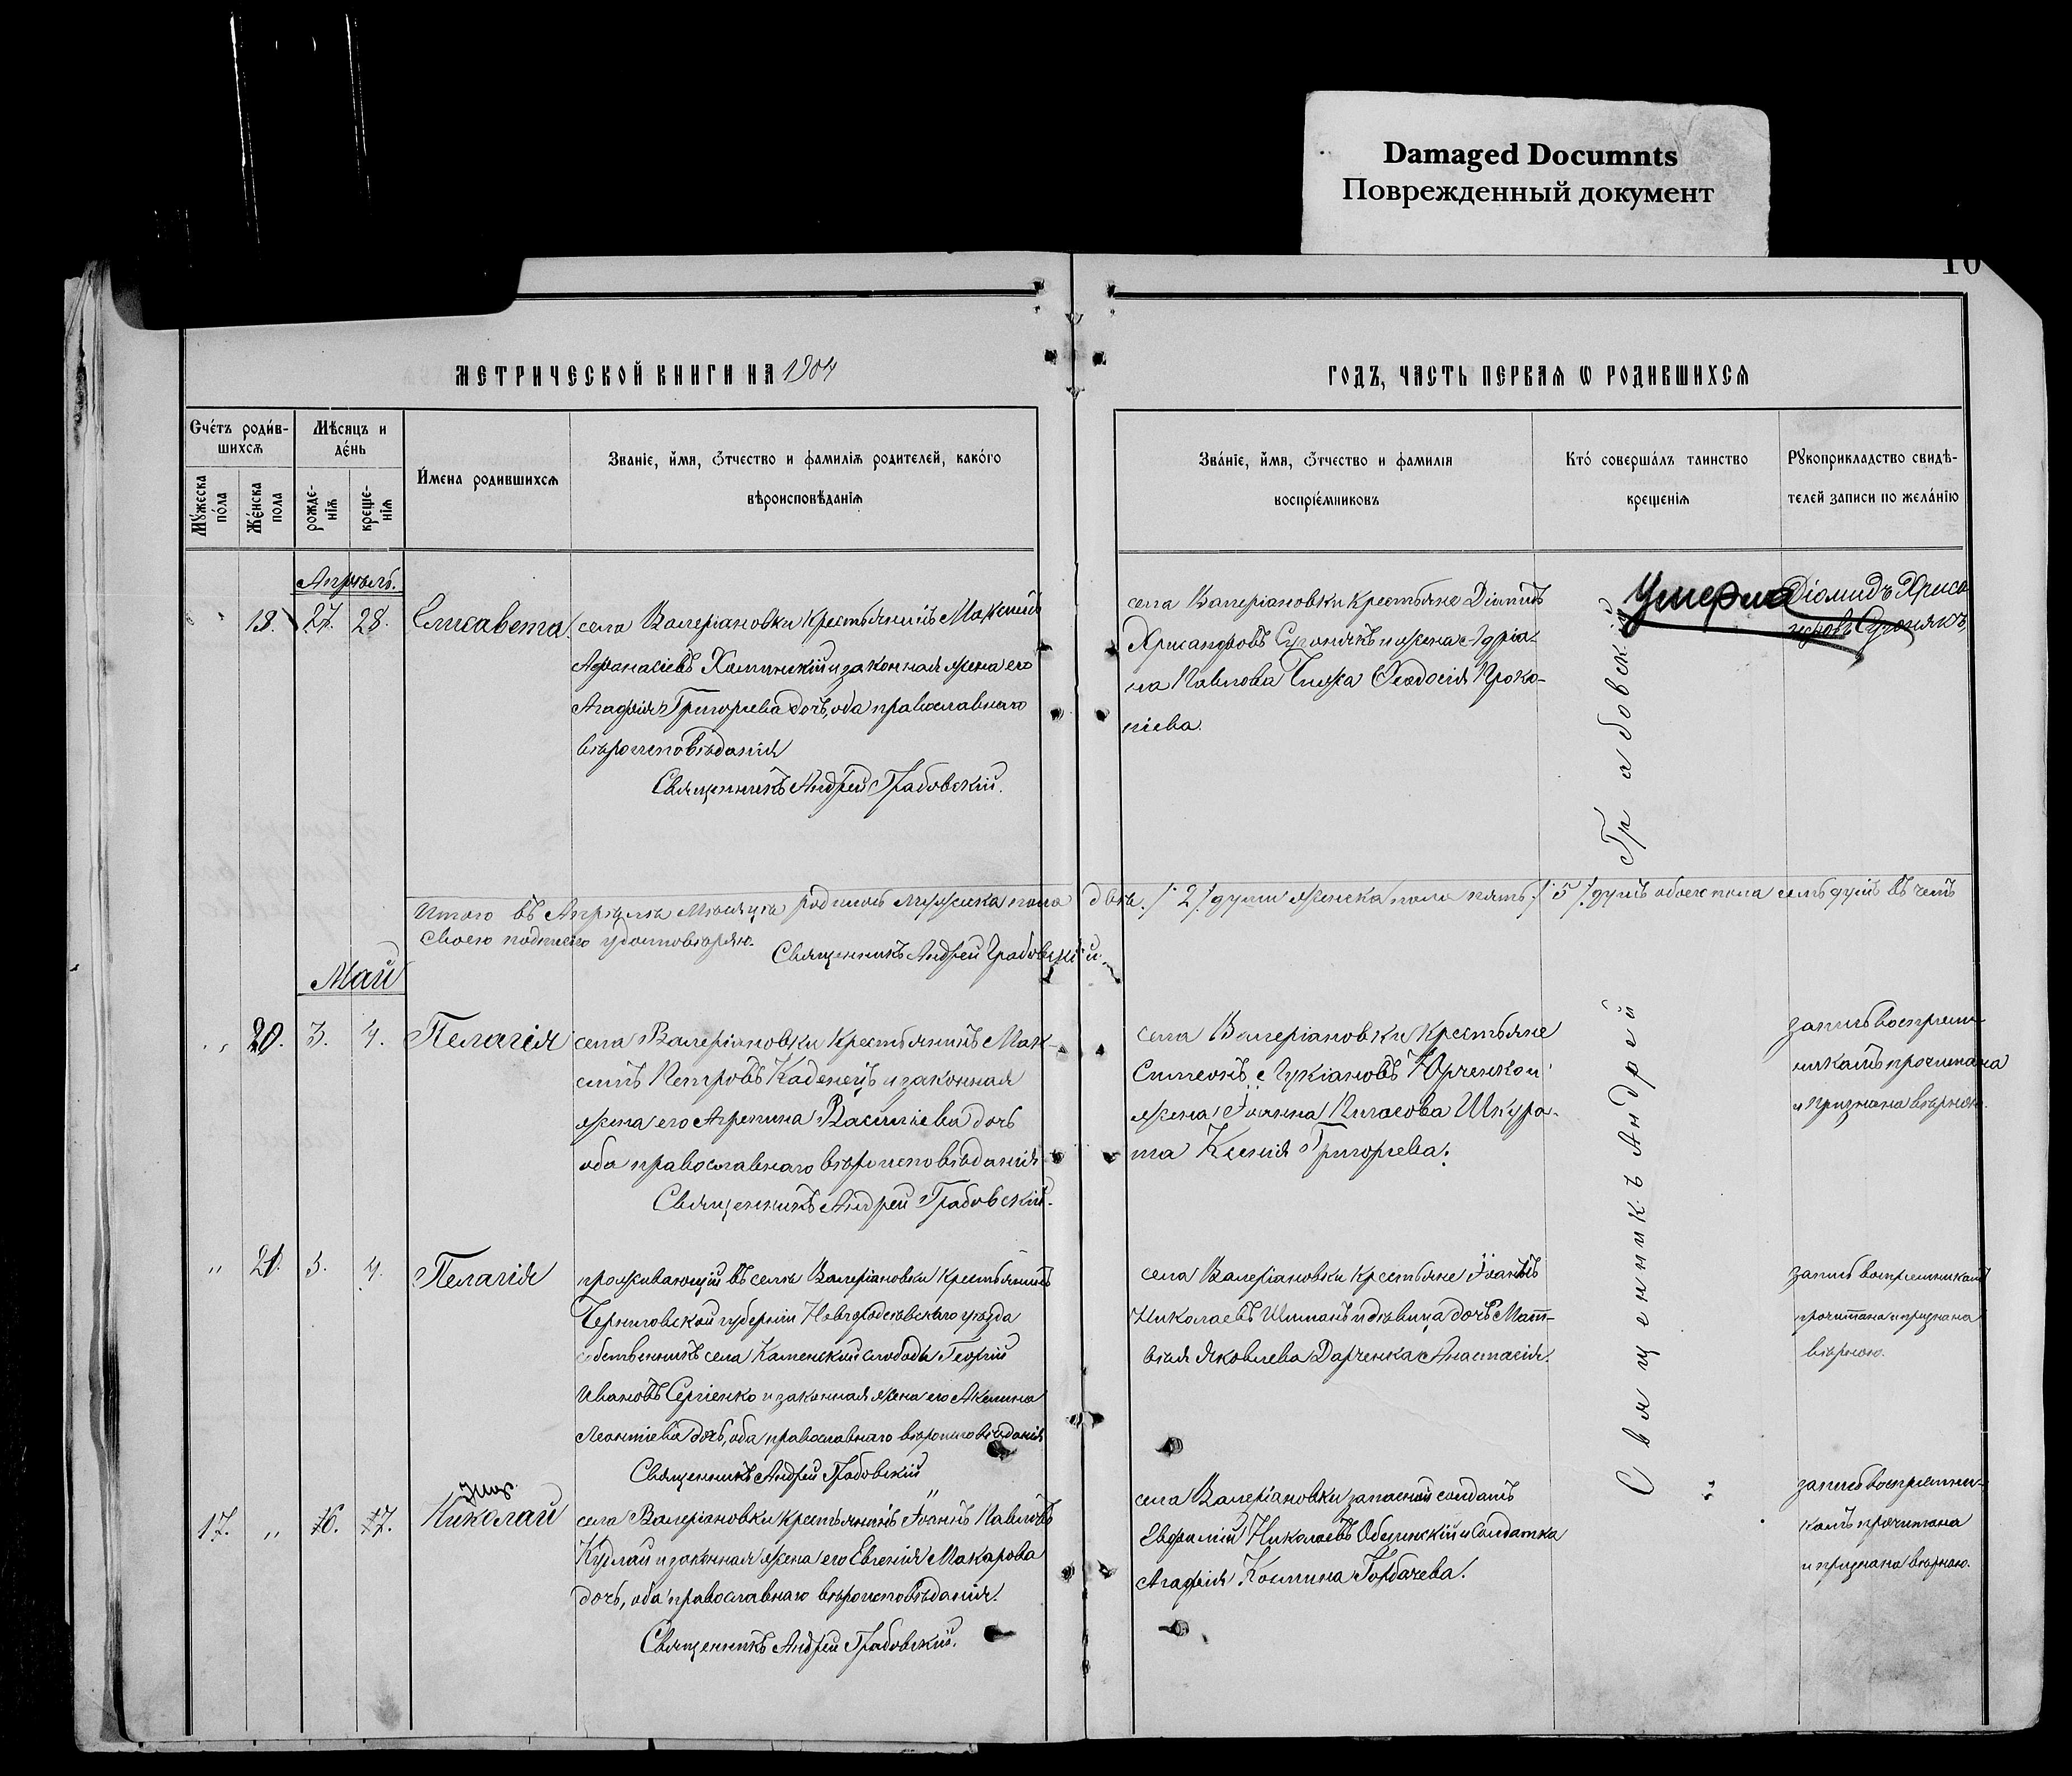 Damaged Documnts
Поврежденный документ
10
МЕТРИЧЕСКОЙ КНИГИ НА 1904
ГОДЪ, ЧАСТЬ ПЕРВАЯ Ѡ РОДИВШИХСЯ
Счетъ родив-
шихся
Мужеска пола
Женска пола
Мѣсяцъ и
день
рожде-
нія
креще-
нія
Имена родившихся
Званіе, имя, отчество и фамилія родителей, какого
вѣроисповѣданія
Званіе, имя, отчество и фамилія
воспріемниковъ
Кто совершалъ таинство
крещенія
Рукоприкладство свидѣ-
телей записи по желанію
Апрѣль.
" 19. 27. 28. Елисавета.
села Валеріановки крестьянинъ Максимъ
Афанасіевъ и законная жена его
Агафія Григорьева дочь, оба православнаго
вѣроисповѣданія
Священникъ Андрей Грабовскій.
села Валеріановки крестьяне Діомидъ
Хрисанфовъ и жена Адріа-
на Павлова Ѳеодосія Проко-
піева.
Умерла
Діомидъ Хриса
Итого въ Апрѣлѣ мѣсяцѣ родилось мужеска пола двѣ /2/ души женска пола пять /5/ душъ обоего пола семь душъ въ чемъ
своею подписью удостовѣряю.
Священникъ Андрей Грабовскій.
Май
" 20. 3. 4. Пелагія
села Валеріановки крестьянинъ Мак-
симъ Петровъ Каденецъ и законная
жена его Агрепина Василіева дочь
оба православнаго вѣроисповѣданія
Священникъ Андрей Грабовскій.
села Валеріановки крестьяне
Симеонъ Лукіановъ Юрченко и
жена Іоанна Шкура-
та Ксенія Григорьева.
запись воспріем-
никамъ прочитана
и признана вѣрною.
" 21. 3. 4. Пелагія
проживающій въ селѣ Валеріановки крестьянинъ
Черниговской губерніи уѣзда
собственникъ села Каменской слободы Георгій
Ивановъ Сергіенко и законная жена его Акилина
Леонтіева дочь, оба православнаго вѣроисповѣданія
Священникъ Андрей Грабовскій
села Валеріановки крестьяне Іоаннъ
Николаевъ и дѣвица дочь Мат-
вѣя Яковлева Анастасія.
запись воспріемникамъ
прочитана и признана
вѣрною.
умер.
17. " 6. 7. Николай
села Валеріановки крестьянинъ Іоаннъ Павловъ
Кудлай и законная жена его Евгенія Макарова
дочь, оба православнаго вѣроисповѣданія.
Священникъ Андрей Грабовскій.
села Валеріановки запасной солдатъ
Евфимій Николаевъ и солдатка
Агафія Косьмина Горбачева.
запись воспріемни-
камъ прочитана
и признана вѣрною.
Священникъ Андрей Грабовскій